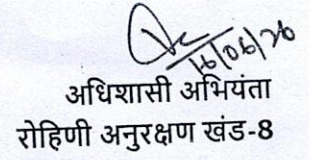 16/06/26
अधिशासी अभियंता
रोहिणी अनुरक्षण खंड-8